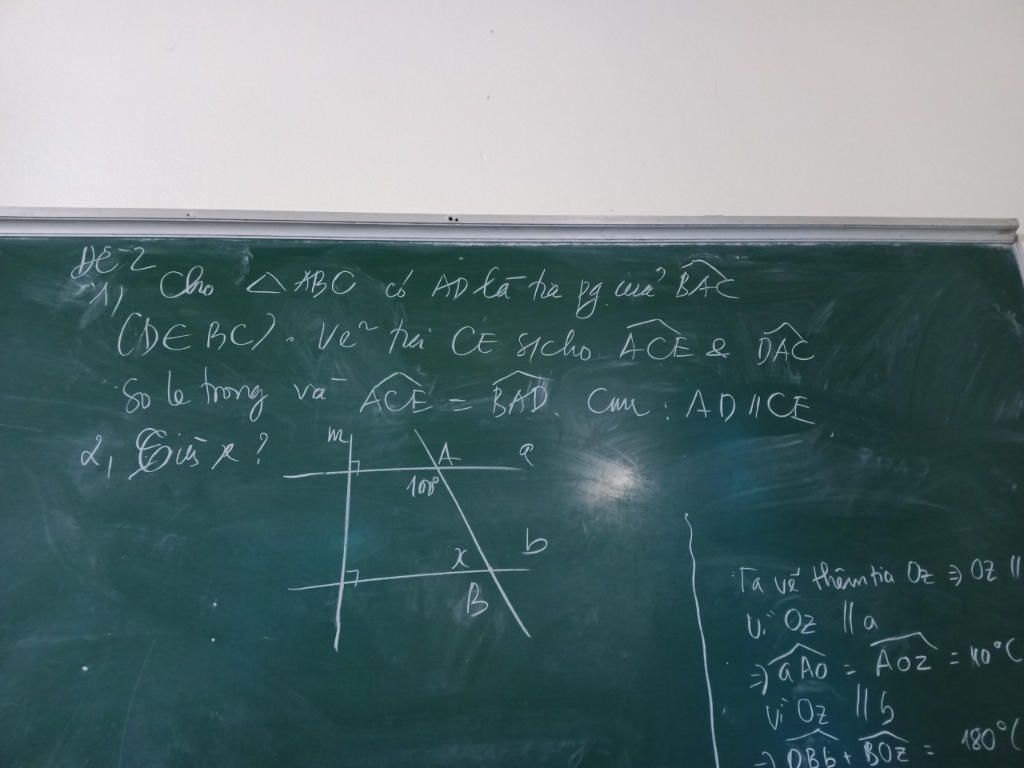 ĐỀ-2
1, Cho △ABC có AD là tia pg của BAC
(D∈BC). Vẽ tia CE s/cho ACE & DAC
So le trong và ACE = BAD. Cm: AD//CE.
2, x?
m A a
100°
x b
B
Ta vẽ thêm tia Oz ⇒ Oz //
Vì Oz // a
⇒ aAO = AOz = 40°(
Vì Oz // b
⇒ OBb + BOz = 180°(